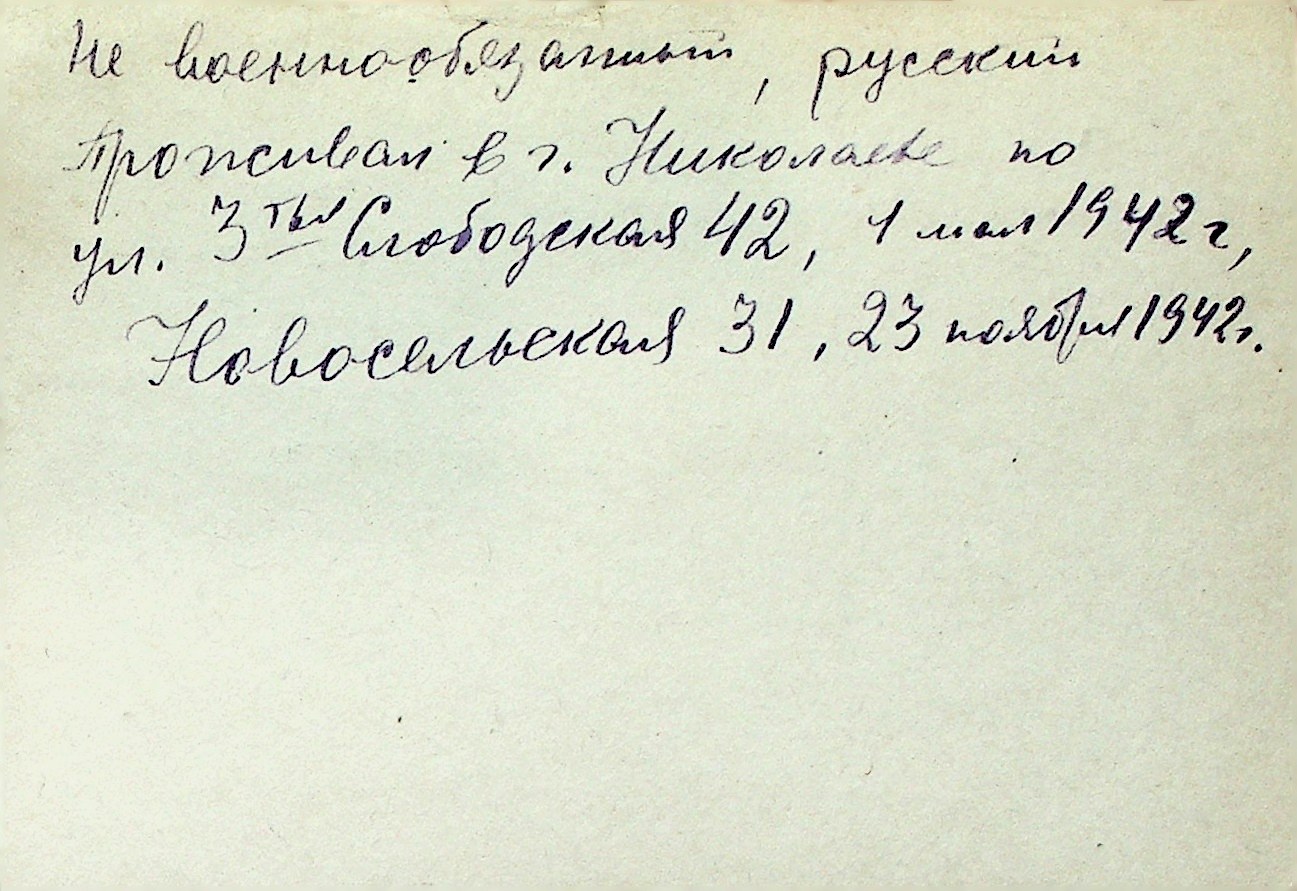 Не военнообязанный, русский
проживал в г. Николаеве по
ул. 3тья Слободская 42, 1 мая 1942 г,
Новосельская 31, 23 ноября 1942г.